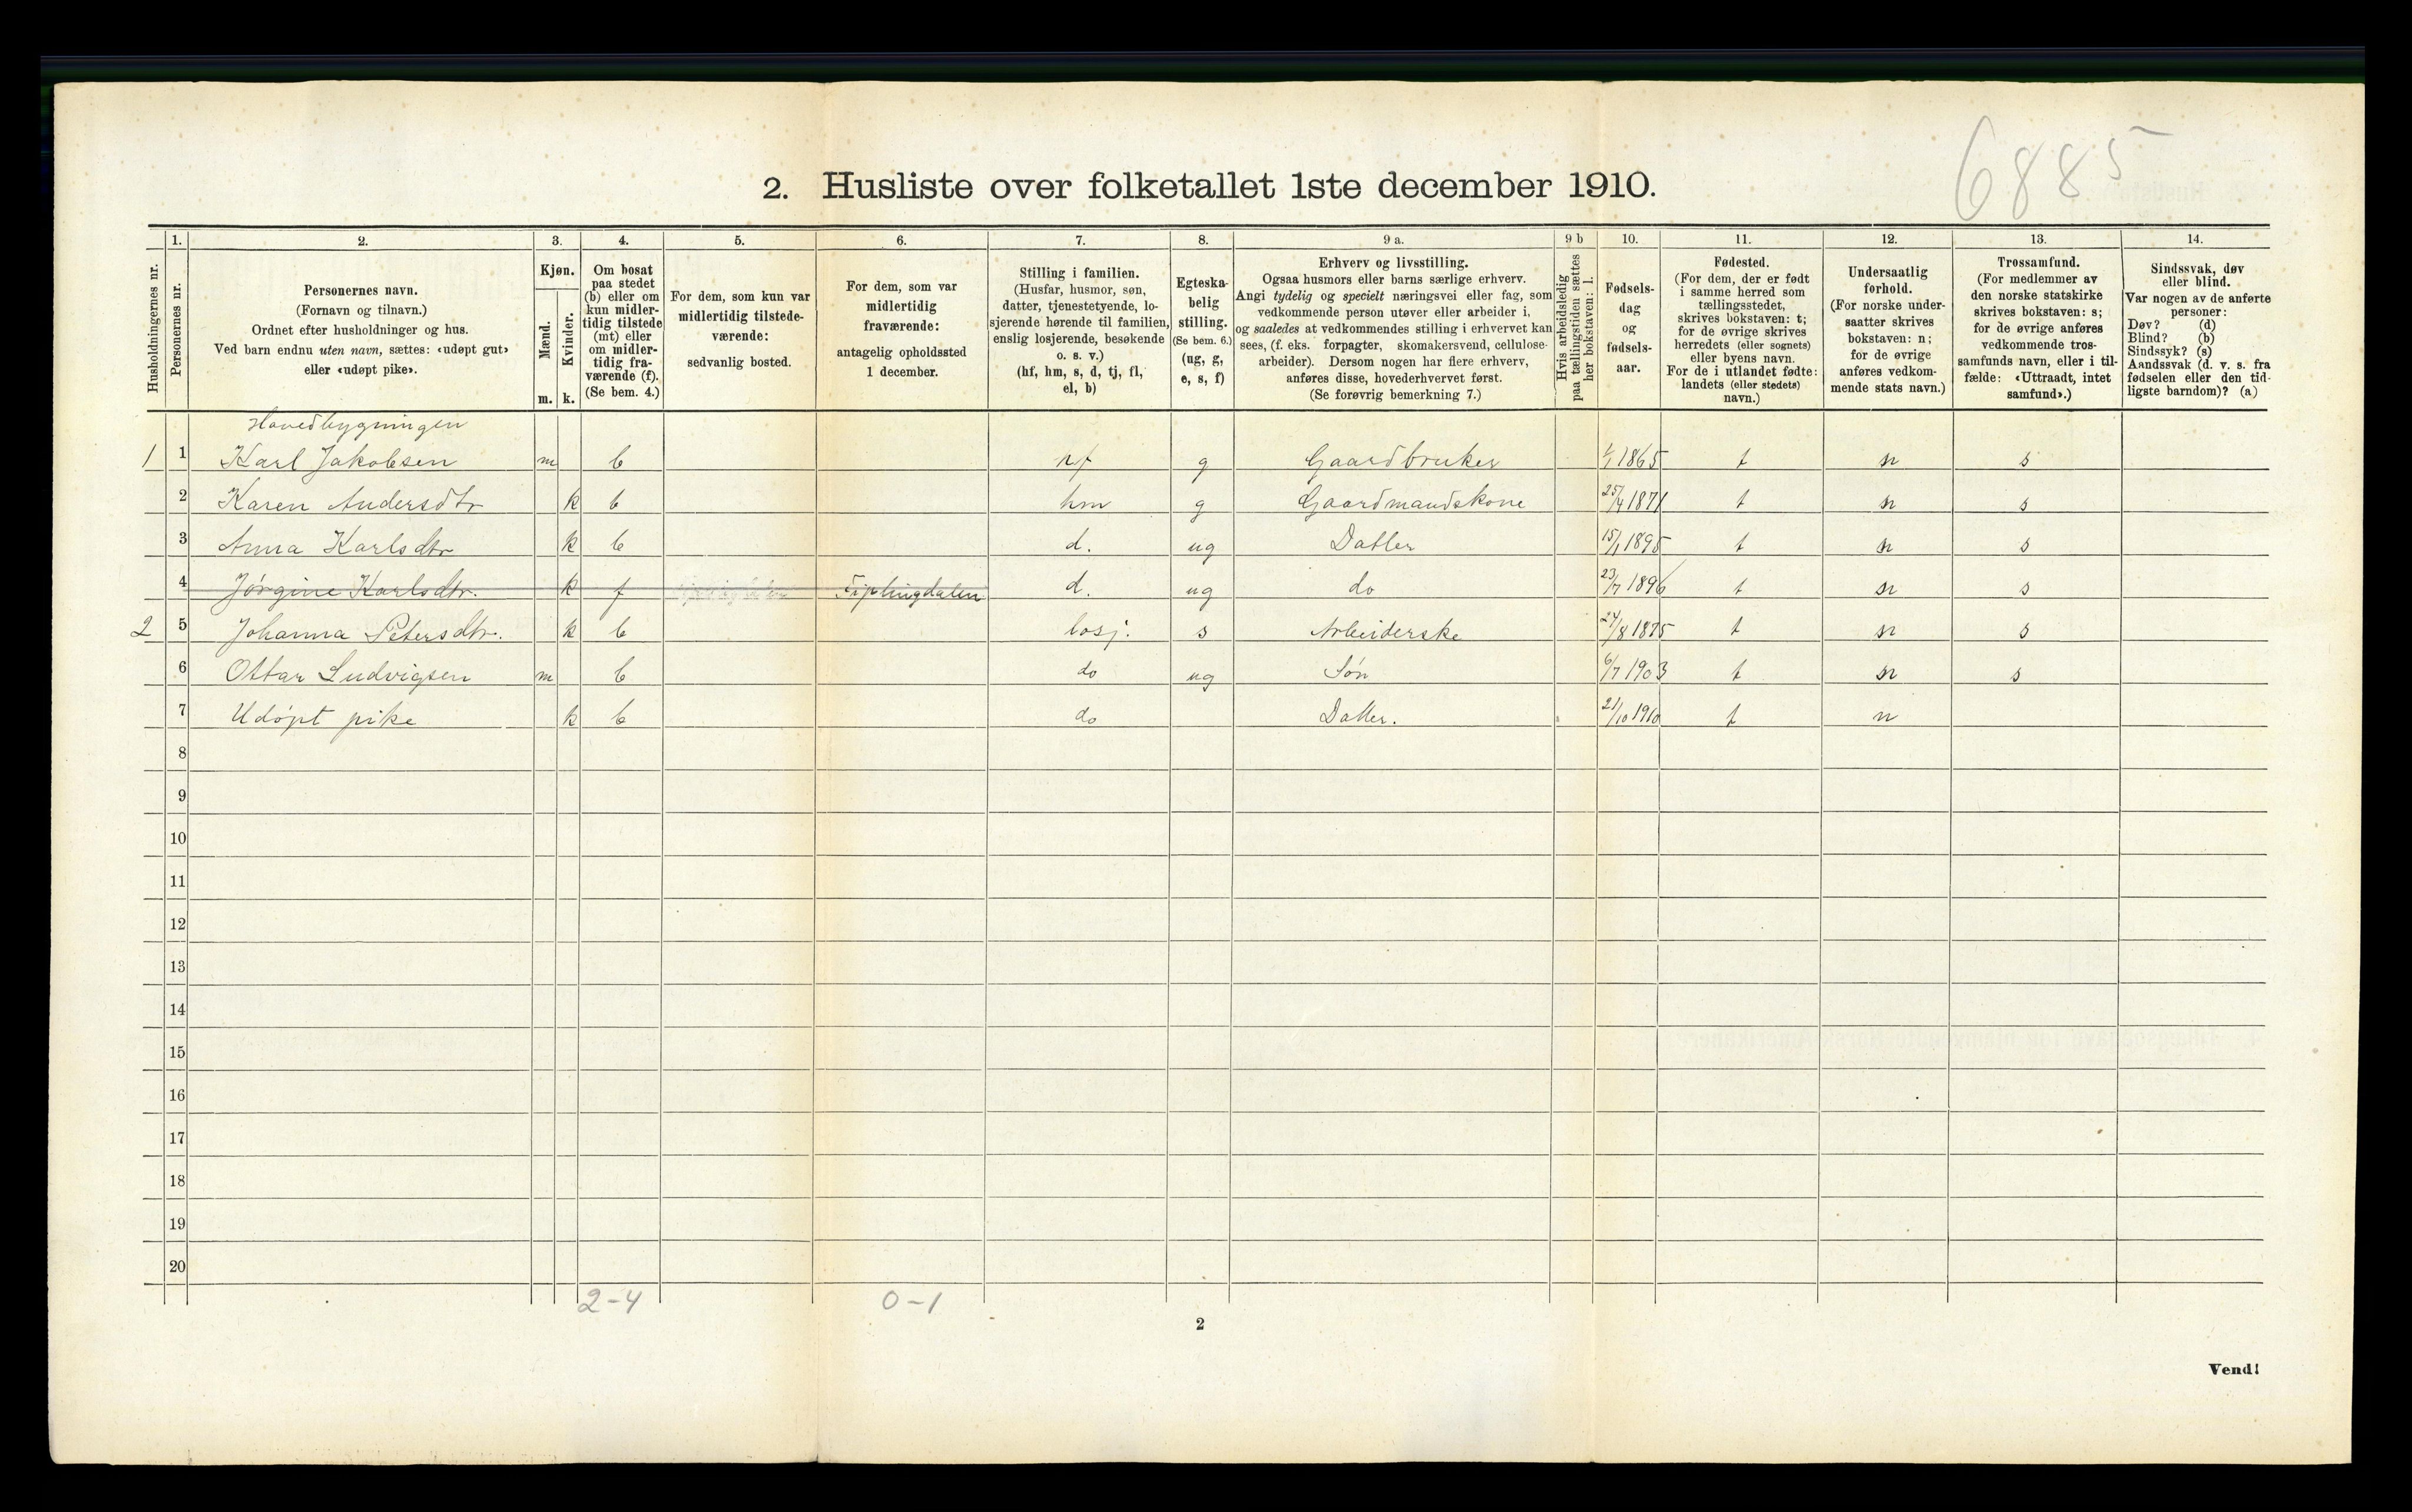 6885
2. Husliste over folketallet 1ste december 1910.
Husholdningernes nr.
1.
Personernes nr.
2.
Personernes navn.
(Fornavn og tilnavn.)
Ordnet efter husholdninger og hus.
Ved barn endnu uten navn, sættes: «udøpt gut»
eller «udøpt pike».
3.
Kjøn.
Mænd.
Kvinder.
m. k.
4.
Om bosat
paa stedet
(b) eller om
kun midler-
tidig tilstede
(mt) eller
om midler-
tidig fra-
værende (f).
(Se bem. 4.)
5.
For dem, som kun var
midlertidig tilstede-
værende:
sedvanlig bosted.
6.
For dem, som var
midlertidig
fraværende:
antagelig opholdssted
1 december.
7.
Stilling i familien.
(Husfar, husmor, søn,
datter, tjenestetyende, lo-
sjerende hørende til familien,
enslig losjerende, besøkende
o. s. v.)
(hf, hm, s, d, tj, fl,
el, b)
8.
Egteska-
belig
stilling.
(Se bem. 6.)
(ug, g,
e, s, f)
9 a.
Erhverv og livsstilling.
Ogsaa husmors eller barns særlige erhverv.
Angi tydelig og specielt næringsvei eller fag, som
vedkommende person utøver eller arbeider i,
og saaledes at vedkommendes stilling i erhvervet kan
sees, (f. eks. forpagter, skomakersvend, cellulose-
arbeider). Dersom nogen har flere erhverv,
anføres disse, hovederhvervet først.
(Se forøvrig bemerkning 7.)
9 b
Hvis arbeidsledig
paa tællingstiden sættes
her bokstaven: l.
10.
Fødsels-
dag
og
fødsels-
aar.
11.
Fødested.
(For dem, der er født
i samme herred som
tællingsstedet,
skrives bokstaven: t;
for de øvrige skrives
herredets (eller sognets)
eller byens navn.
For de i utlandet fødte:
landets (eller stedets)
navn.)
12.
Undersaatlig
forhold.
(For norske under-
saatter skrives
bokstaven: n;
for de øvrige
anføres vedkom-
mende stats navn.)
13.
Trossamfund.
(For medlemmer av
den norske statskirke
skrives bokstaven: s;
for de øvrige anføres
vedkommende tros-
samfunds navn, eller i til-
fælde: «Uttraadt, intet
samfund».)
14.
Sindssvak, døv
eller blind.
Var nogen av de anførte
personer:
Døv? (d)
Blind? (b)
Sindssyk? (s)
Aandssvak (d. v. s. fra
fødselen eller den tid-
ligste barndom)? (a)
Hovedbygningen
1 1 Karl Jakobsen m b hf g Gaardbruker 1/1 1865 t n s
2 Karen Andersdtr k b hm g Gaardmandskone 25/4 1871 t n s
3 Anna Karlsdtr k b d. ug Datter 15/1 1895 t n s
4 Jørgine Karlsdtr. k f Fiplingdalen d. ug do 23/7 1896 t n s
2 5 Johanna Petersdtr. k b losj. s Arbeiderske 24/8 1875 t n s
6 Ottar Ludvigsen m b do ug Søn 6/7 1903 t n s
7 Udøpt pike k b do Datter. 21/10 1910 t n
8
9
10
11
12
13
14
15
16
17
18
19
20
2-4 0-1
2
Vend!